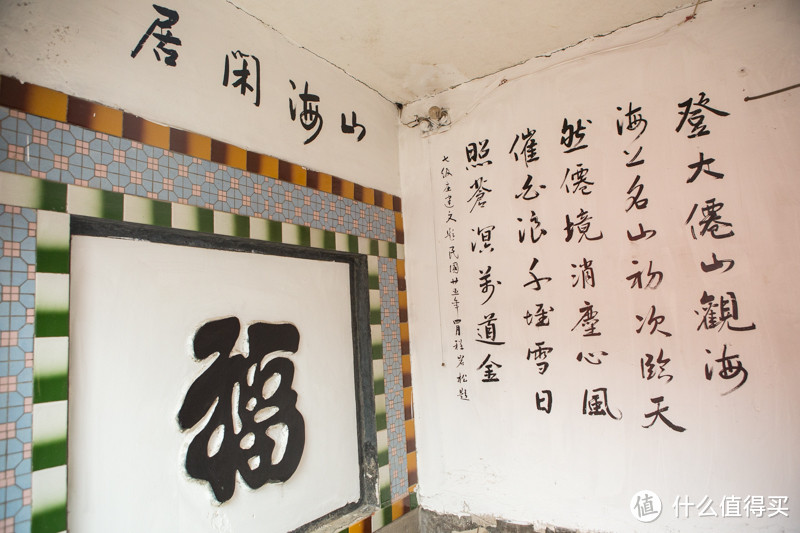 山海閑居
福
登大僊山觀海
海上名山初次臨天
然僊境消塵心風
催白浪千堆雪日
照蒼溟萬道金
民國廿五年四月程岩松題
值 什么值得买